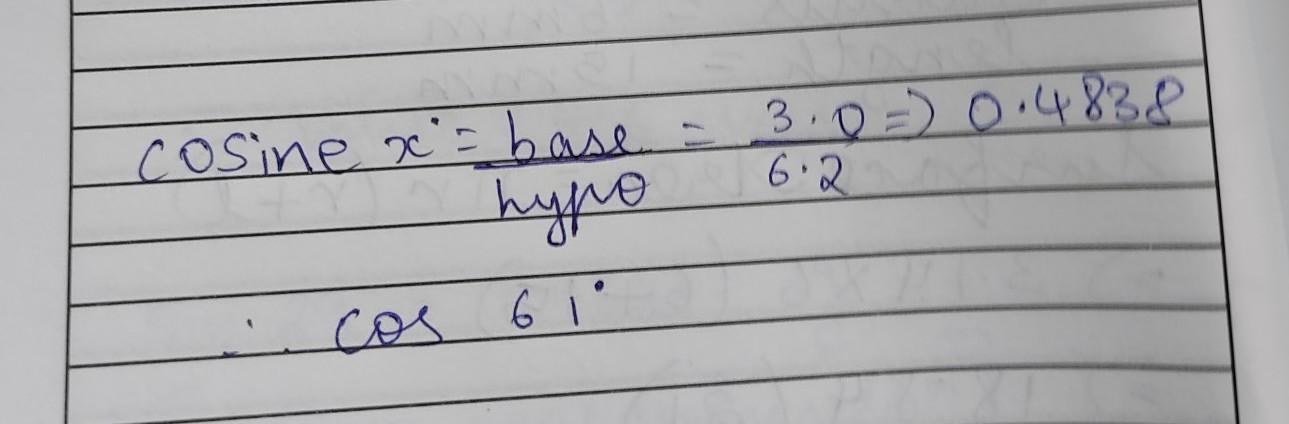 cosine x° = base/hypo = 3.0/6.2 => 0.4838
∴ cos 61°